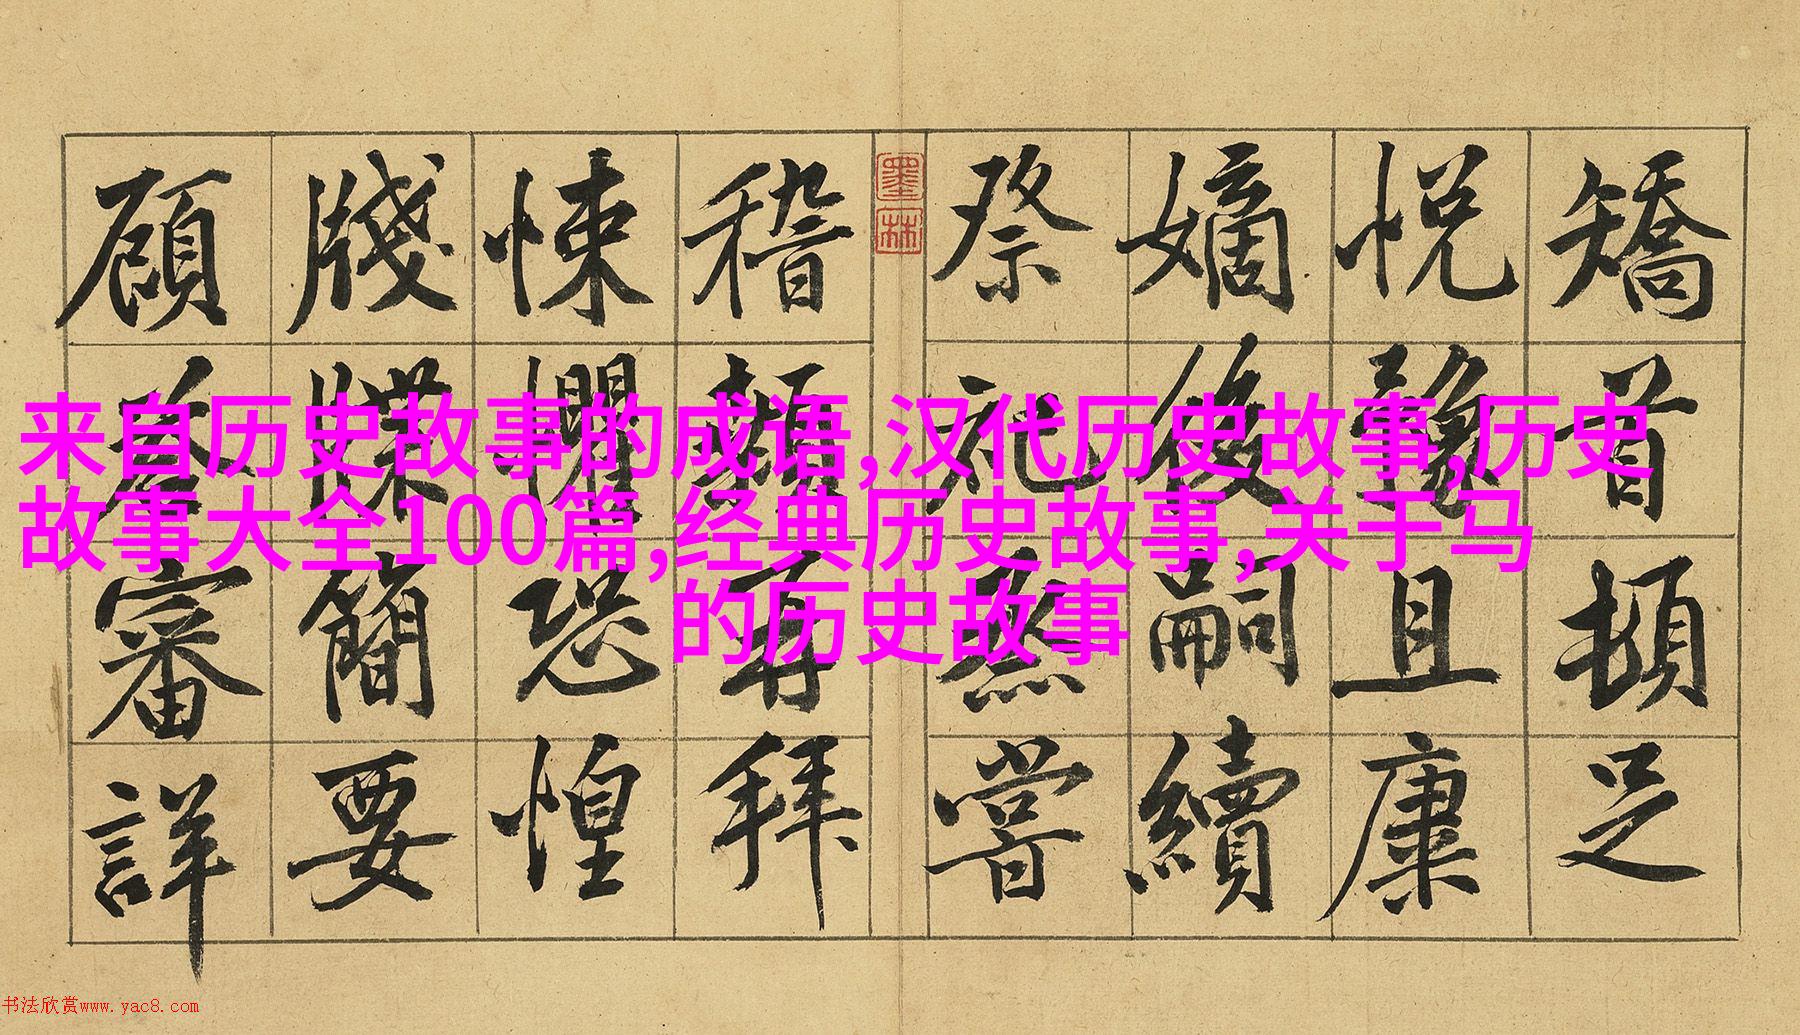 矯首頓足
悅豫且康
嫡後嗣續
祭祀蒸嘗
墨林
稽顙再拜
悚懼恐惶
牋牒簡要
顧荅審詳
来自历史故事的成语,汉代历史故事,历史
故事大全100篇,经典历史故事,关于马
的历史故事
书法欣赏www.yac8.com